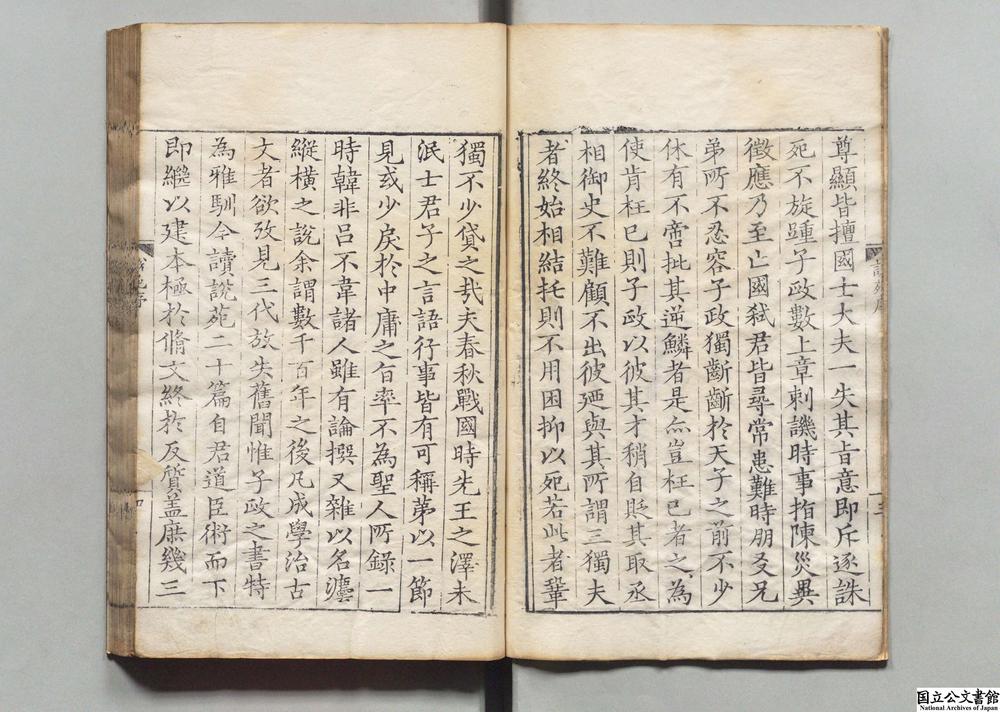 尊顯皆擅國士大夫一失其旨意即斥逐誅
死不旋踵子政數上章刺譏時事指陳災異
徵應乃至亡國弑君皆尋常患難時朋友兄
弟所不忍容子政獨齗齗於天子之前不少
休有不啻批其逆鱗者是亦豈枉己者之為
使肯枉己則子政以彼其才稍自貶其取丞
相御史不難顧不出彼廼與其所謂三獨夫
者終始相結托則不用困抑以死若此者鞏
獨不少貸之㢤夫春秋戰國時先王之澤未
泯士君子之言語行事皆有可稱苐以一節
見或少戾於中庸之㫖率不為聖人所錄一
時韓非呂不韋諸人雖有論撰又雜以名灋
縱橫之說余謂數千百年之後凡成學治古
文者欲攷見三代放失舊聞惟子政之書特
為雅馴今讀說苑二十篇自君道臣術而下
即繼以建本極於脩文終於反質盖庶幾三
國立公文書館
National Archives of Japan